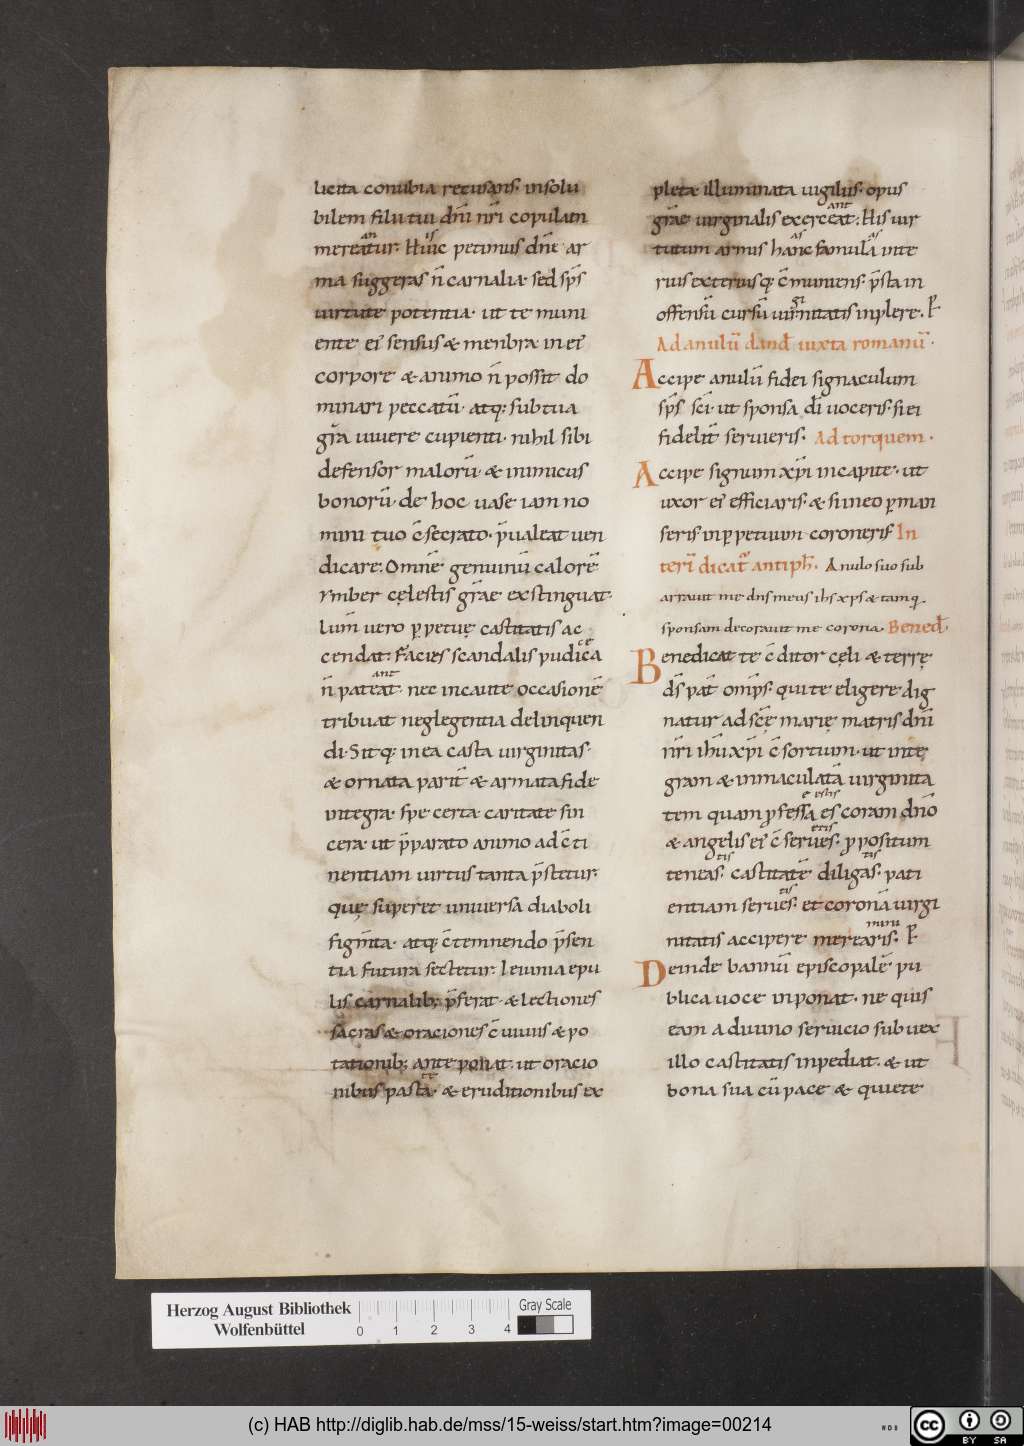 licita conubia recusans· insolu
bilem filii tui dn̄i nr̄i copulam
mereatur· Huic petimus dn̄e ar
an is
ma suggeras n̄ carnalia· sed sp̄s
uirtute potentia· ut te muni
ente ei sensus & menbra in ei
corpore & animo n̄ possit do
minari peccatū· atq; sub tua
gr̄a uiuere cupienti· nihil sibi
defensor malorū· & inimicus
bonorū· de hoc uase iam no
mini tuo c̄secrato· p̄ualeat uen
dicare· Omnē genuinū calorē
ymber cęlestis gr̄ae exstinguat·
lum̄ uero p̱petuę castitatis ac
cendat· Facies scandalis pudica
ce
n̄ pateat· nec incaute occasionē
ant
tribuat neglegentia delinquen
di· Sitq; in ea casta uirginitas·
& ornata parit̄ & armata fide
integra· spe certa· caritate sin
cera· ut p̄parato animo ad c̄ti
nentiam uirtus tanta p̄stetur·
quę superet uniuersa diaboli
figm̄ta· atq; c̄temnendo p̄sen
tia futura sectetur· Ieiunia epu
lis carnalib; p̄ferat· & lectiones
sacras & oraciones c̄uiuiis & po
tationib; anteponat· ut oracio
nibus pasta· & eruditionibus ex
te
pletae illuminata uigiliis· opus
gr̄ae uirginalis exerceat· His uir
ant
tutum armis hanc famulā inte
as as
rius exteriusq; c̄muniens· p̄sta in
offensū cursū uirnitatis inplere· P̱
gi
Ad anulū dand̄ iuxta romanū·
Accipe anulū fidei signaculum
sp̄s sc̄i· ut sponsa dī uoceris· si ei
fidelit̄ seruieris· Ad torquem·
Accipe signum xp̄i in capite· ut
uxor ei efficiaris· & si in eo p̱man
seris in p̱petuum coroneris In
terī dicat̄ antiph̄· Anulo suo sub
arrauit me dns meus ihs xps & tamq̄
sponsam decorauit me corona· Bened̄·
Benedicat te c̄ditor cęli & terrę
ds̄ pat̄ omīps· qui te eligere dig
natur ad sc̄ę marię matris dn̄i
nr̄i ihū xp̄i c̄sortium· ut inte
gram & inmaculatā uirginita
tem quam p̱fessa es coram dn̄o
e estis
& angelis ei c̄serues· p̱positum
etis
teneas· castitatē diligas· pati
tis tis
entiam serues· et coronā uirgi
tis
nitatis accipere merearis· P̱
mini
Deinde bannū episcopalē pu
blica uoce inponat· ne quis
eam a diuino seruicio sub uex
illo castitatis inpediat· & ut
bona sua cū pace & quiete
Herzog August Bibliothek
Wolfenbüttel
0 1 2 3 4
Gray Scale
(c) HAB http://diglib.hab.de/mss/15-weiss/start.htm?image=00214
WDB
cc
BY SA